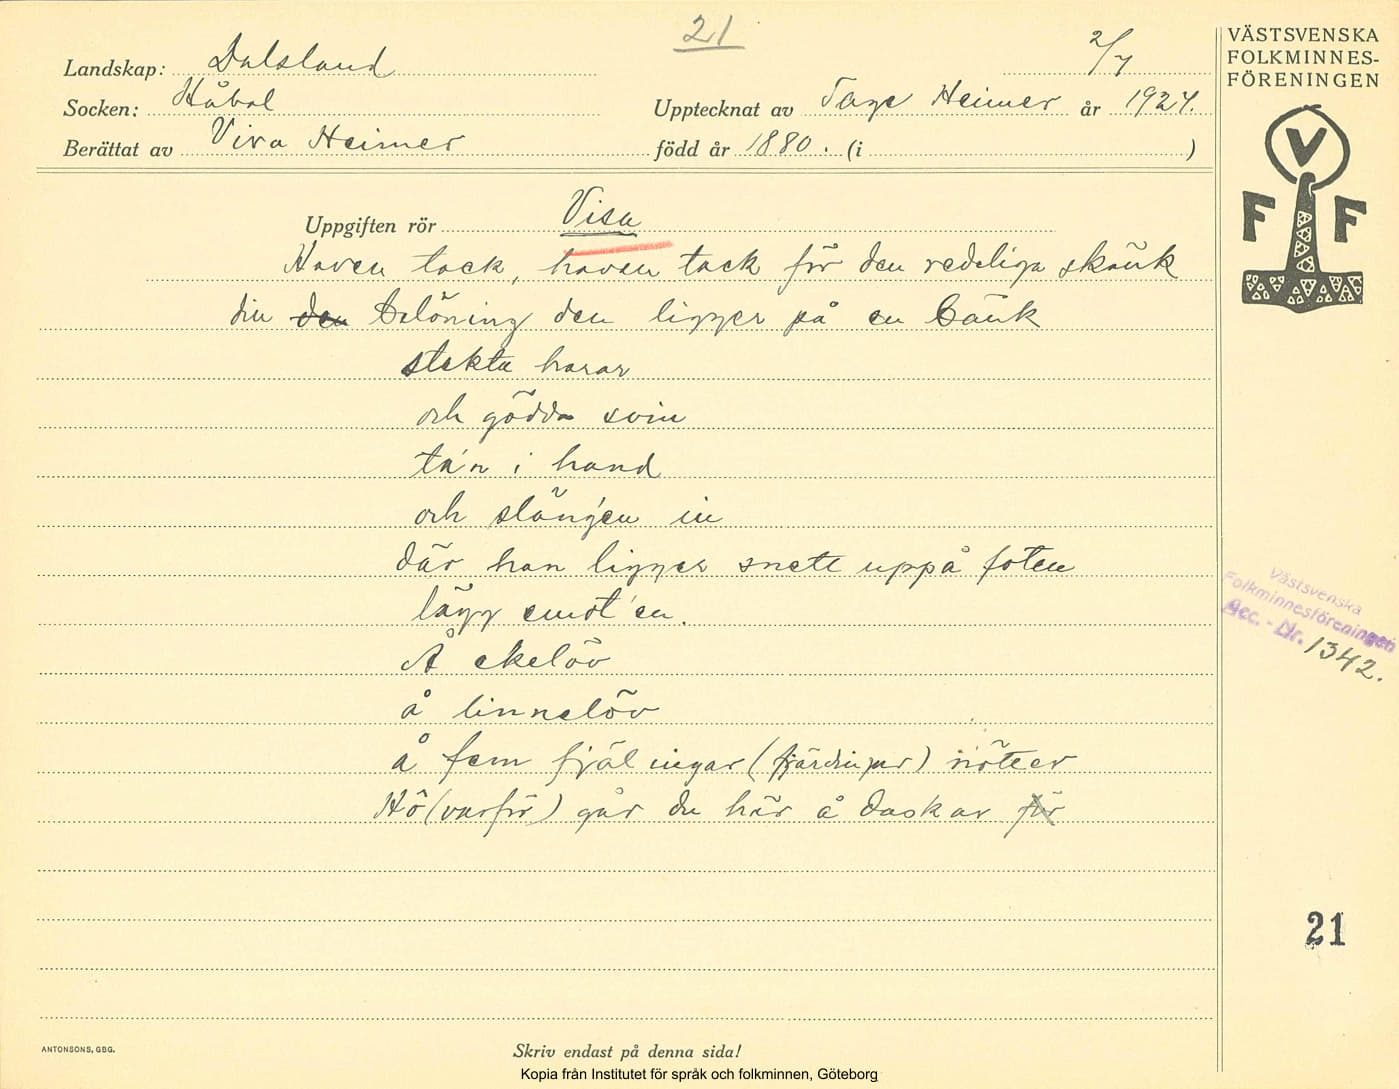 21
2/7
Landskap: Dalsland
Socken: Håbol
Upptecknat av Tage Heimer år 1924.
Berättat av Viva Heimer född år 1880. (i )
VÄSTSVENSKA
FOLKMINNES-
FÖRENINGEN
V
F F
Uppgiften rör Visa
Haven tack, haven tack för den redeliga skänk
din den belöning den ligger på en bänk
stekta harar
och gödda svin
ta'n i hand
och släng'en in
där han ligger snett uppå foten
lägg emot'en.
Å ekelöv
å linnelöv
å fem fjälingar (fjärdingar) nötter
Hô (varför) går du här å daskar för
Västsvenska
Folkminnesföreningen
Acc. - Nr. 1342.
21
ANTONSONS, GBG.
Skriv endast på denna sida!
Kopia från Institutet för språk och folkminnen, Göteborg